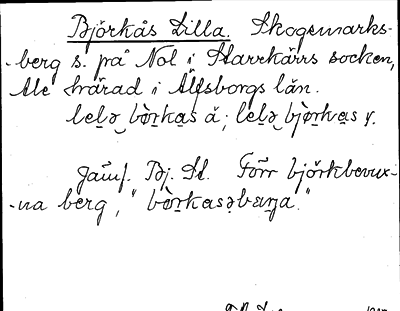 Björkås Lilla. Skogsmarks-
-berg s. på Nol i Starrkärrs socken,
Ale härad i Älfsborgs län.
lelə bò̱rkas å; lelə bjò̱rkas y.
Jämf. Bj. St. Förr björkbevux-
-na berg, "bò̱rkasəbæŋa."